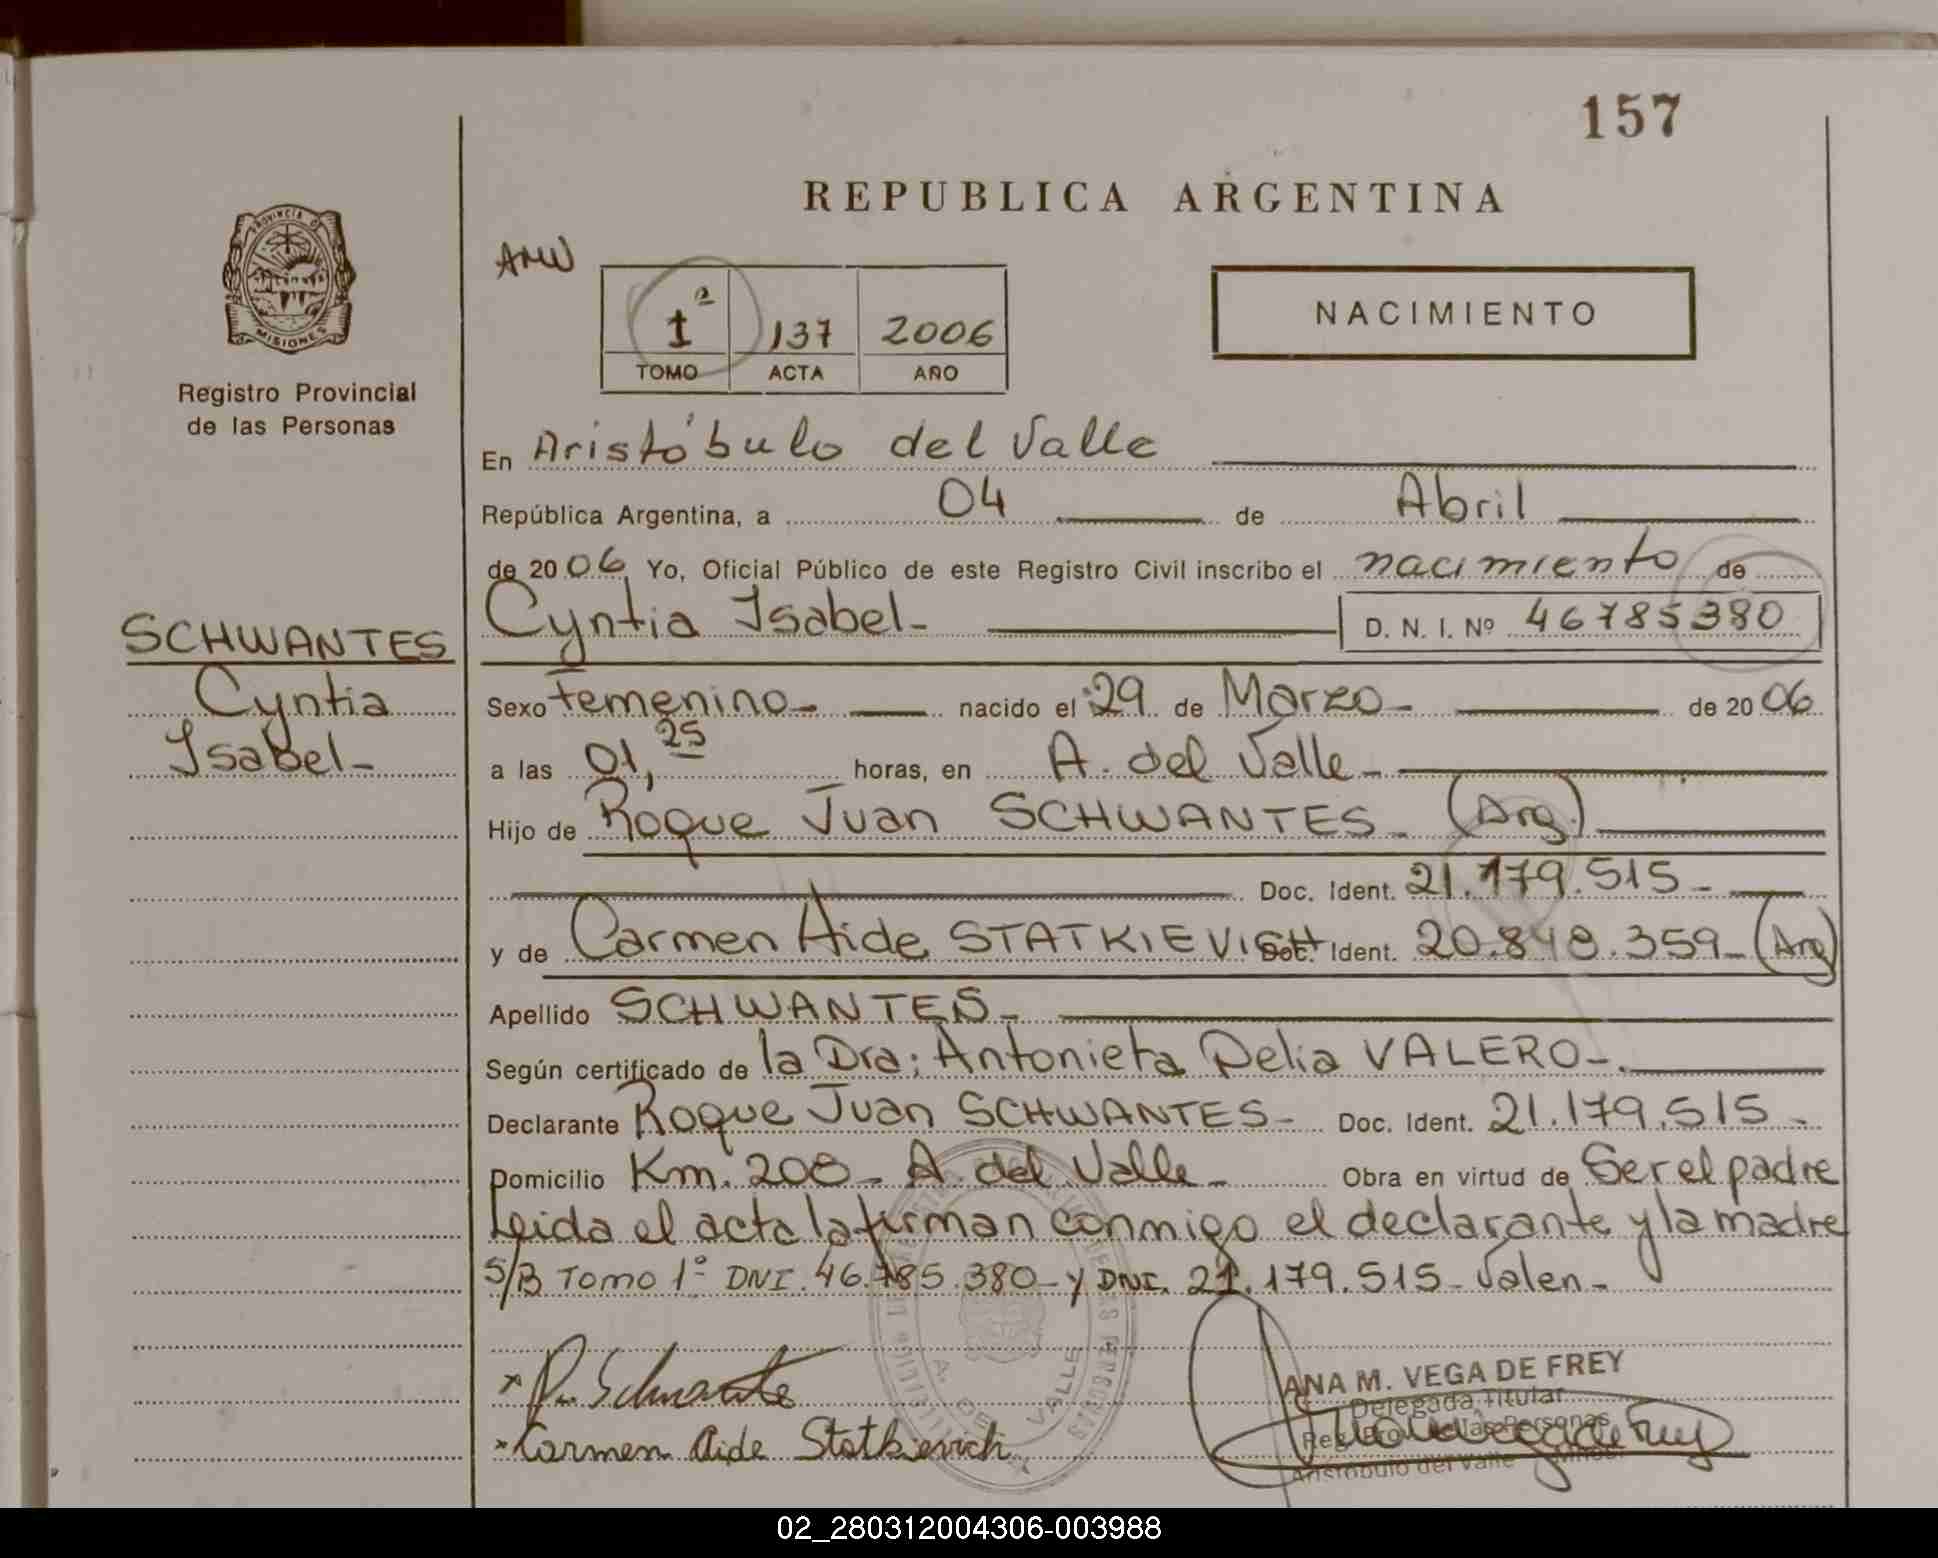 157
REPUBLICA ARGENTINA
PROVINCIA D
MISIONES
Registro Provincial
de las Personas
AMV
1ª 137 2006
TOMO ACTA AÑO
NACIMIENTO
En Aristóbulo del Valle
República Argentina, a 04 de Abril
de 2006 Yo, Oficial Público de este Registro Civil inscribo el nacimiento de
Cyntia Isabel- D. N. I. Nº 46785380
SCHWANTES
Cyntia
Isabel-
Sexo Femenino- nacido el 29 de Marzo- de 2006
a las 01,25 horas, en A. del Valle-
Hijo de Roque Juan SCHWANTES- (Arg)
Doc. Ident. 21.179.515-
y de Carmen Aide STATKIEVICH Doc. Ident. 20.848.359- (Arg)
Apellido SCHWANTES-
Según certificado de la Dra: Antonieta Delia VALERO-
Declarante Roque Juan SCHWANTES- Doc. Ident. 21.179.515-
Domicilio Km. 208- A. del Valle- Obra en virtud de Ser el padre
Leida el acta la firman conmigo el declarante y la madre
S/B Tomo 1º DNI. 46.785.380- y DNI. 21.179.515- Valen-
Carmen Aide Statkievich
A. DEL VALLE
ANA M. VEGA DE FREY
Delegada Titular
Reg. Prov. de las Personas
Aristóbulo del Valle
02_280312004306-003988